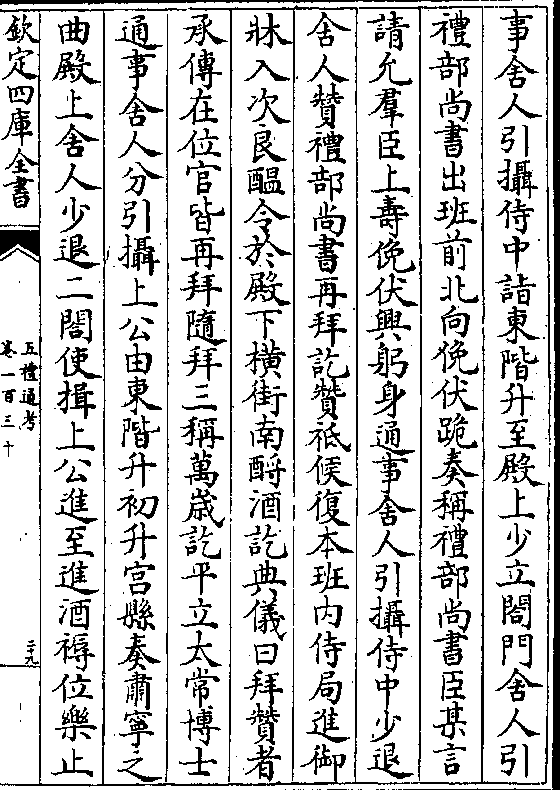 事舍人引攝侍中詣東階升至殿上少立閤門舍人引
禮部尚書出班前北向俛伏跪奏稱禮部尚書臣某言
請允羣臣上壽俛伏興躬身通事舍人引攝侍中少退
舍人贊禮部尚書再拜訖贊祗候復本班内侍局進御
牀入次良醖令於殿下橫街南酹酒訖典儀曰拜贊者
承傳在位官皆再拜隨拜三稱萬歲訖平立太常博士
通事舍人分引攝上公由東階升初升宫縣奏肅寧之
曲殿上舍人少退二閤使揖上公進至進酒褥位樂止
欽定四庫全書
五禮通考
卷一百三十
三九